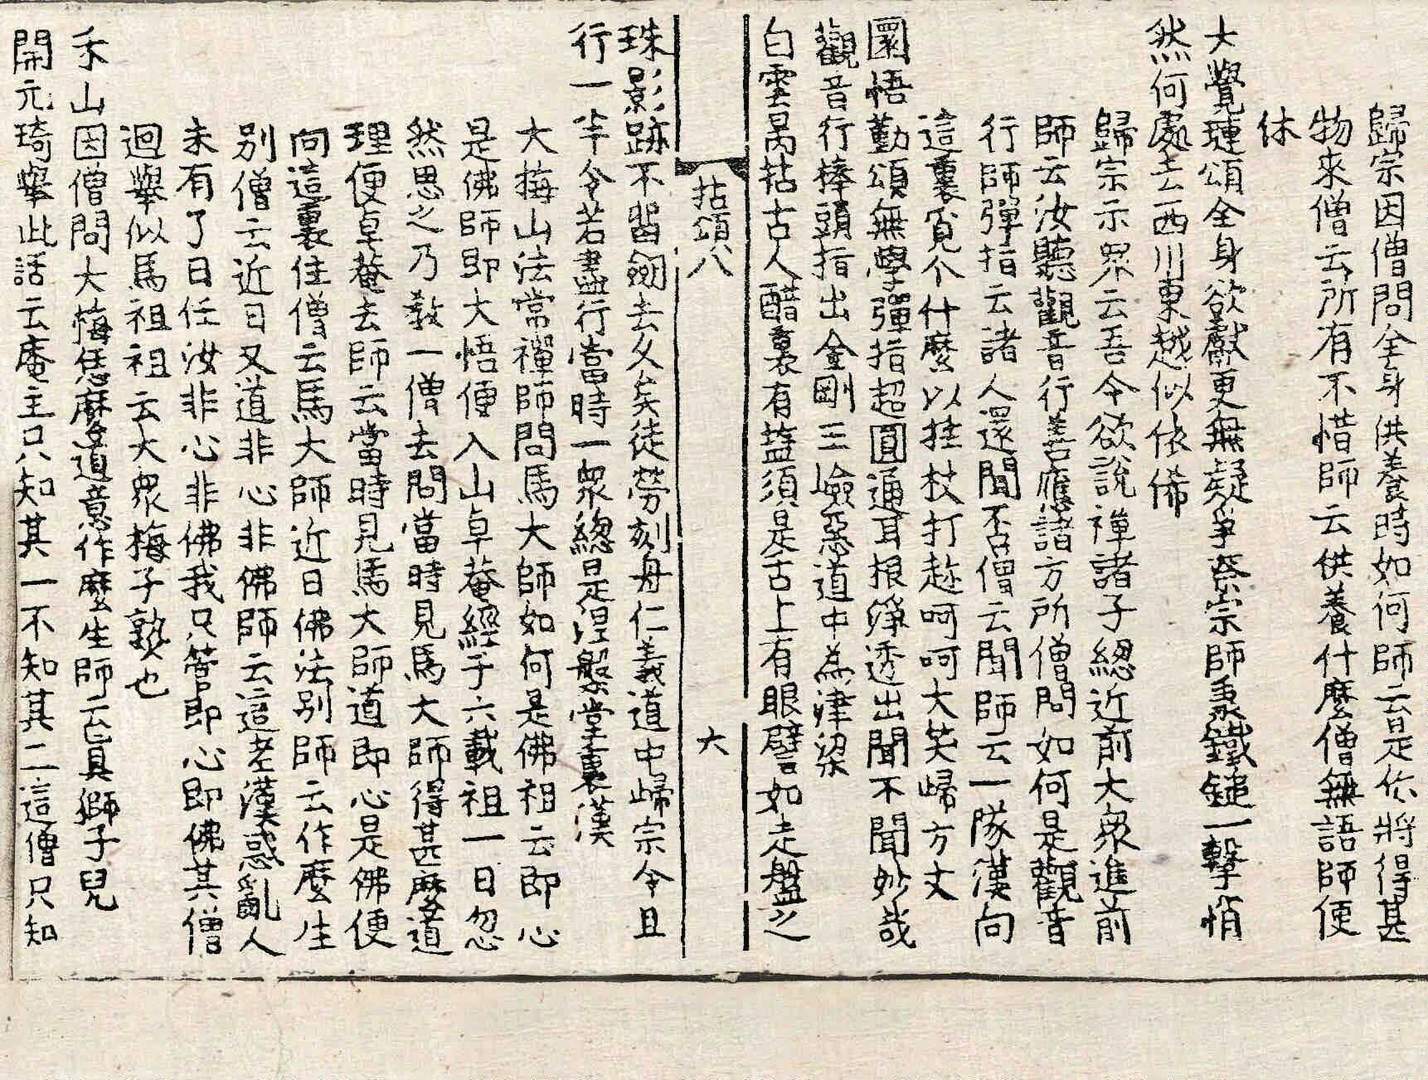 歸宗因僧問全身供養時如何師云是你將得甚
物來僧云所有不惜師云供養什麼僧無語師便
休
大覺璉頌全身欲獻更無疑爭柰宗師秉鐵鎚一擊悄
然何處去西川東越似依俙
歸宗示眾云吾今欲說禪諸子總近前大衆進前
師云汝聽觀音行善應諸方所僧問如何是觀音
行師彈指云諸人還聞否僧云聞師云一隊漢向
這裏覓个什麼以拄杖打趂呵呵大笑歸方丈
圜悟勤頌無學彈指超圓通耳根淨透出聞不聞妙哉
觀音行棒頭指出金剛王嶮惡道中為津梁
白雲昺拈古人醋裏有鹽須是舌上有眼譬如走盤之
拈頌八
六
珠影跡不留劒去久矣徒勞刻舟仁義道中歸宗令且
行一半令若盡行當時一衆總是涅槃堂裏漢
大梅山法常禪師問馬大師如何是佛祖云即心
是佛師即大悟便入山卓菴經于六載祖一日忽
然思之乃教一僧去問當時見馬大師得甚麼道
理便卓菴去師云當時見馬大師道即心是佛便
向這裏住僧云馬大師近日佛法別師云作麼生
別僧云近日又道非心非佛師云這老漢惑亂人
未有了日任汝非心非佛我只管即心即佛其僧
迴舉似馬祖祖云大衆梅子熟也
禾山因僧問大梅恁麼道意作麼生師云真獅子兒
開元琦舉此話云庵主只知其一不知其二這僧只知